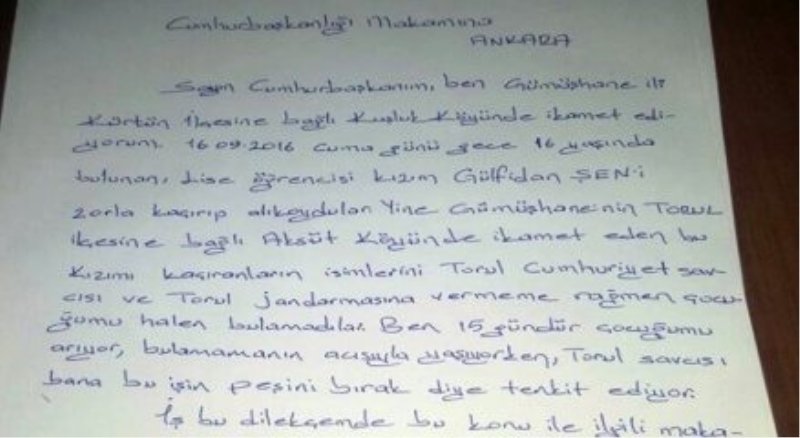 Cumhurbaşkanlığı Makamına
ANKARA
Sayın Cumhurbaşkanım, ben Gümüşhane ili
Kürtün İlçesine bağlı Kuşluk Köyünde ikamet edi-
yorum. 16.09.2016 cuma günü gece 16 yaşında
bulunan, Lise öğrencisi kızım Gülfidan ŞEN'i
zorla kaçırıp alıkoydular. Yine Gümüşhane'nin TORUL
ilçesine bağlı Aksüt Köyünde ikamet eden bu
kızımı kaçıranların isimlerini Torul Cumhuriyet sav-
cısı ve Torul jandarmasına vermeme rağmen çocu-
ğumu halen bulamadılar. Ben 15 gündür çocuğumu
arıyor, bulamamanın acısıyla yaşıyorken, Torul savcısı
bana bu işin peşini bırak diye tenkit ediyor.
İş bu dilekçemde bu konu ile ilgili maka-